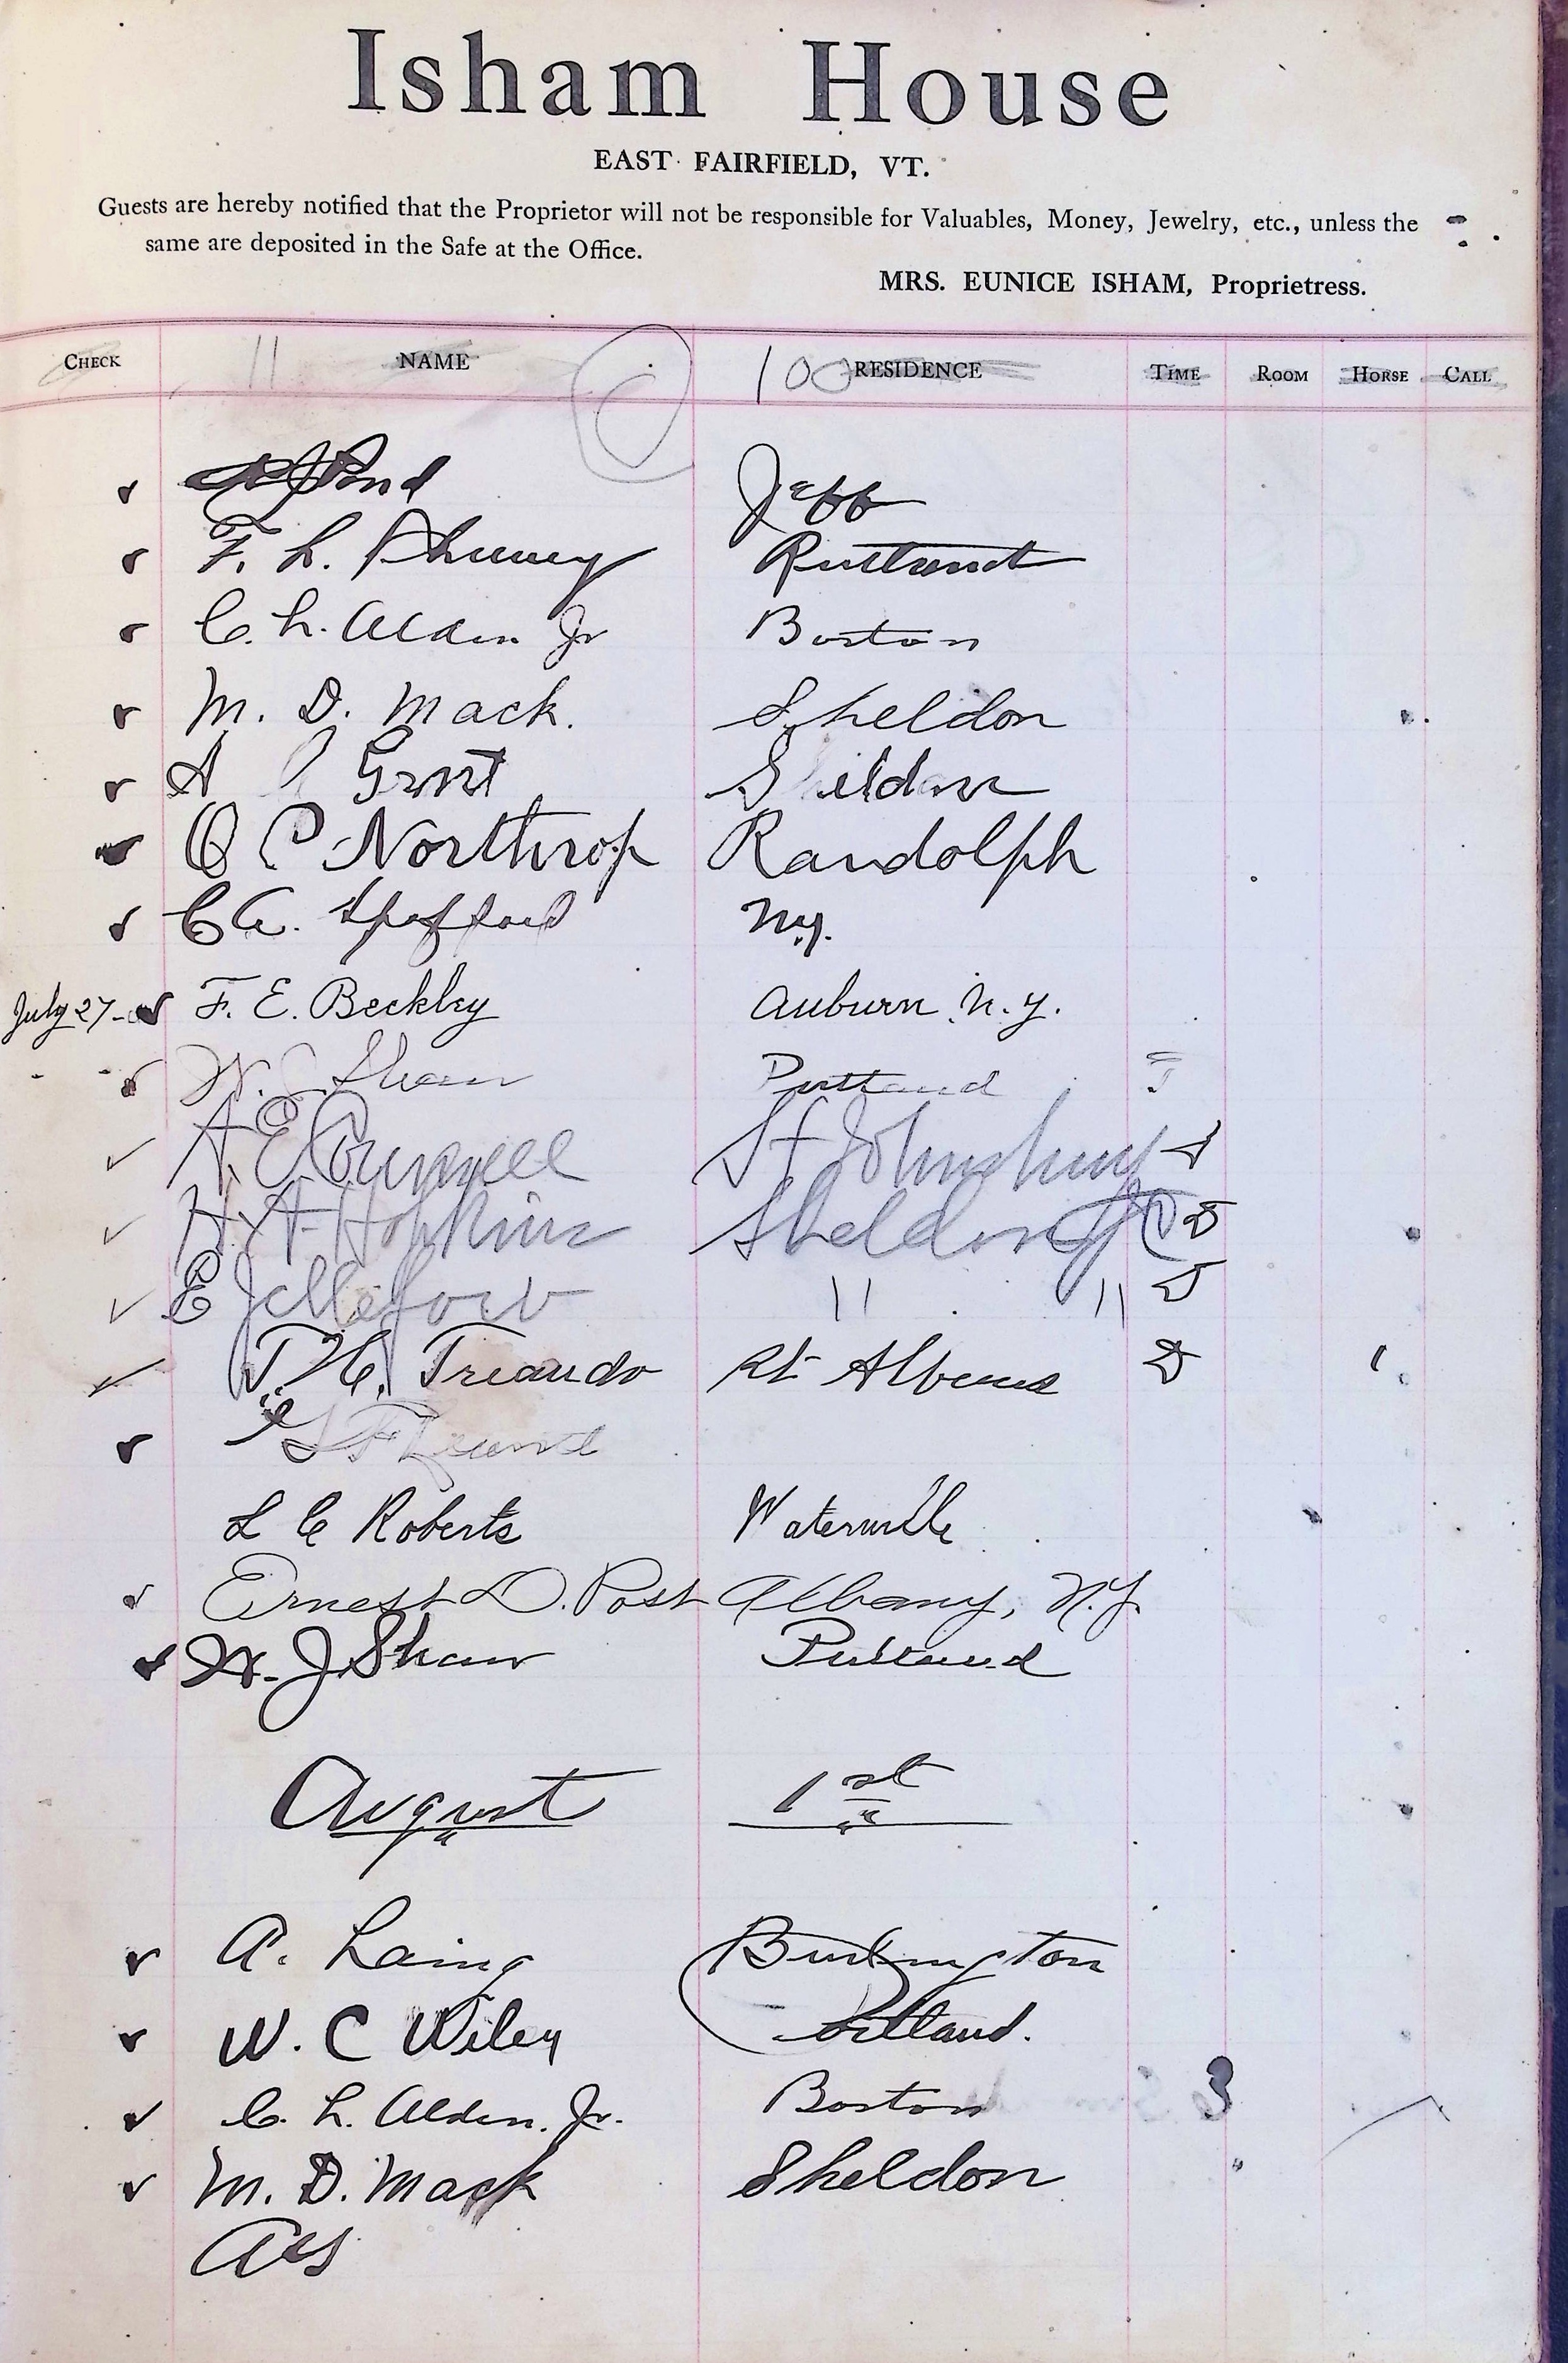 Isham House
EAST FAIRFIELD, VT.
Guests are hereby notified that the Proprietor will not be responsible for Valuables, Money, Jewelry, etc., unless the
same are deposited in the Safe at the Office.
MRS. EUNICE ISHAM, Proprietress.
CHECK NAME RESIDENCE TIME ROOM HORSE CALL
11 100
Pond Jeff
F. L. Rutland
C. L. Alden Jr Boston
M. D. Mack. Sheldon
A Grant
O P Northrop Randolph
C A. Spofford N.y.
July 27- F. E. Beckley Auburn N.y.
W. J. Shaw
A. E. St Johnsbury
H. A. Hopkins Sheldon
E " "
T. H. St Albans
L C Roberts Waterville
Ernest D. Post Albany, N.Y.
W. J. Shaw
August 1st
A. Laing Burlington
W. C Wiley
C. L. Alden. Jr. Boston 3
M. D. Mack Sheldon